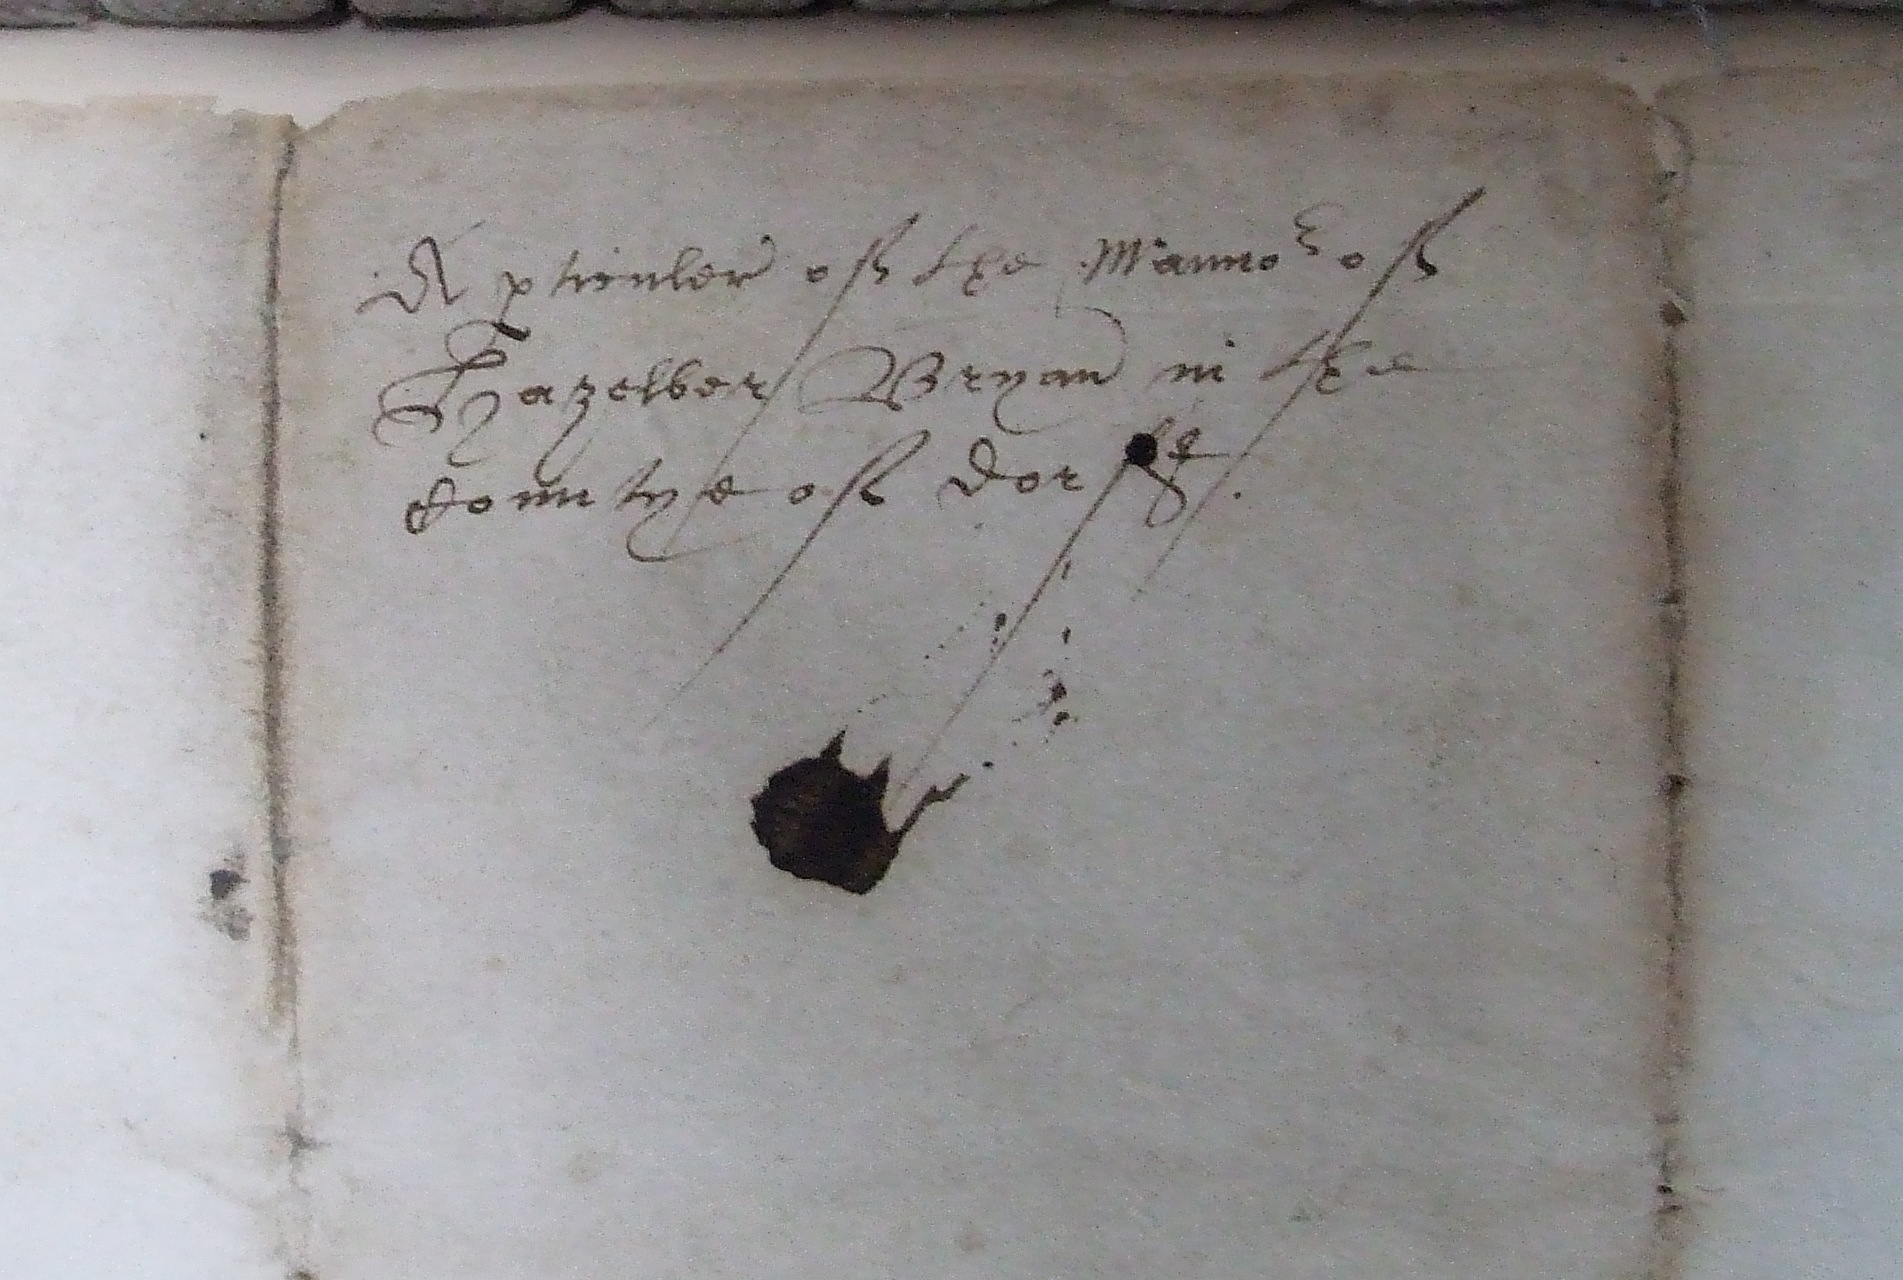 A pticuler of the Manno^r of
Hazelber Bryan in the
Countye of Dorſ